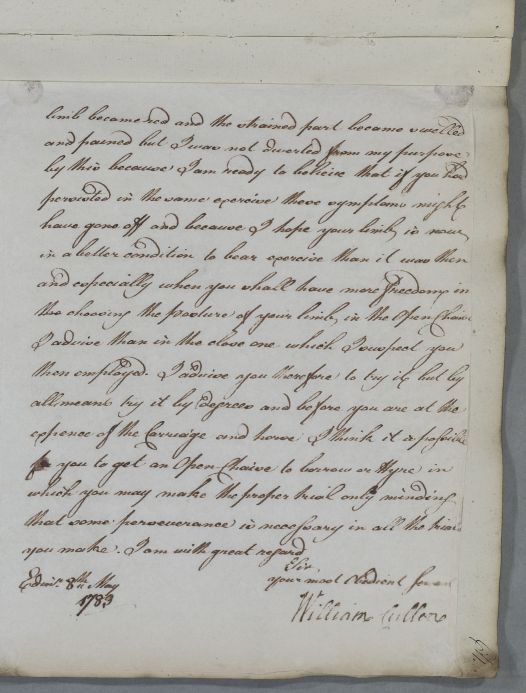 limb became red and the strained part became swelled
and pained but I was not diverted from my purpose
by this because I am ready to believe that if you had
persisted in the same exercise these symptoms might
have gone off and because I hope your limb is now
in a better condition to bear exercise than it was then
and especially when you shall have more freedom in
the choosing the posture of your limb in the Open Chaise
I advise than in the close one which I suspect you
then employed. I advise you therefore to try it but by
all means try it by degrees and before you are at the
expence of the Carriage and horse I think it possible
for you to get an Open Chaise to borrow or Hyre in
which you may make the proper trial only minding
that some perseverance is necessary in all the trials
you make. I am with great regard
Sir
your most Obedient Servan
Edinr. 8th May
1783
William Cullen